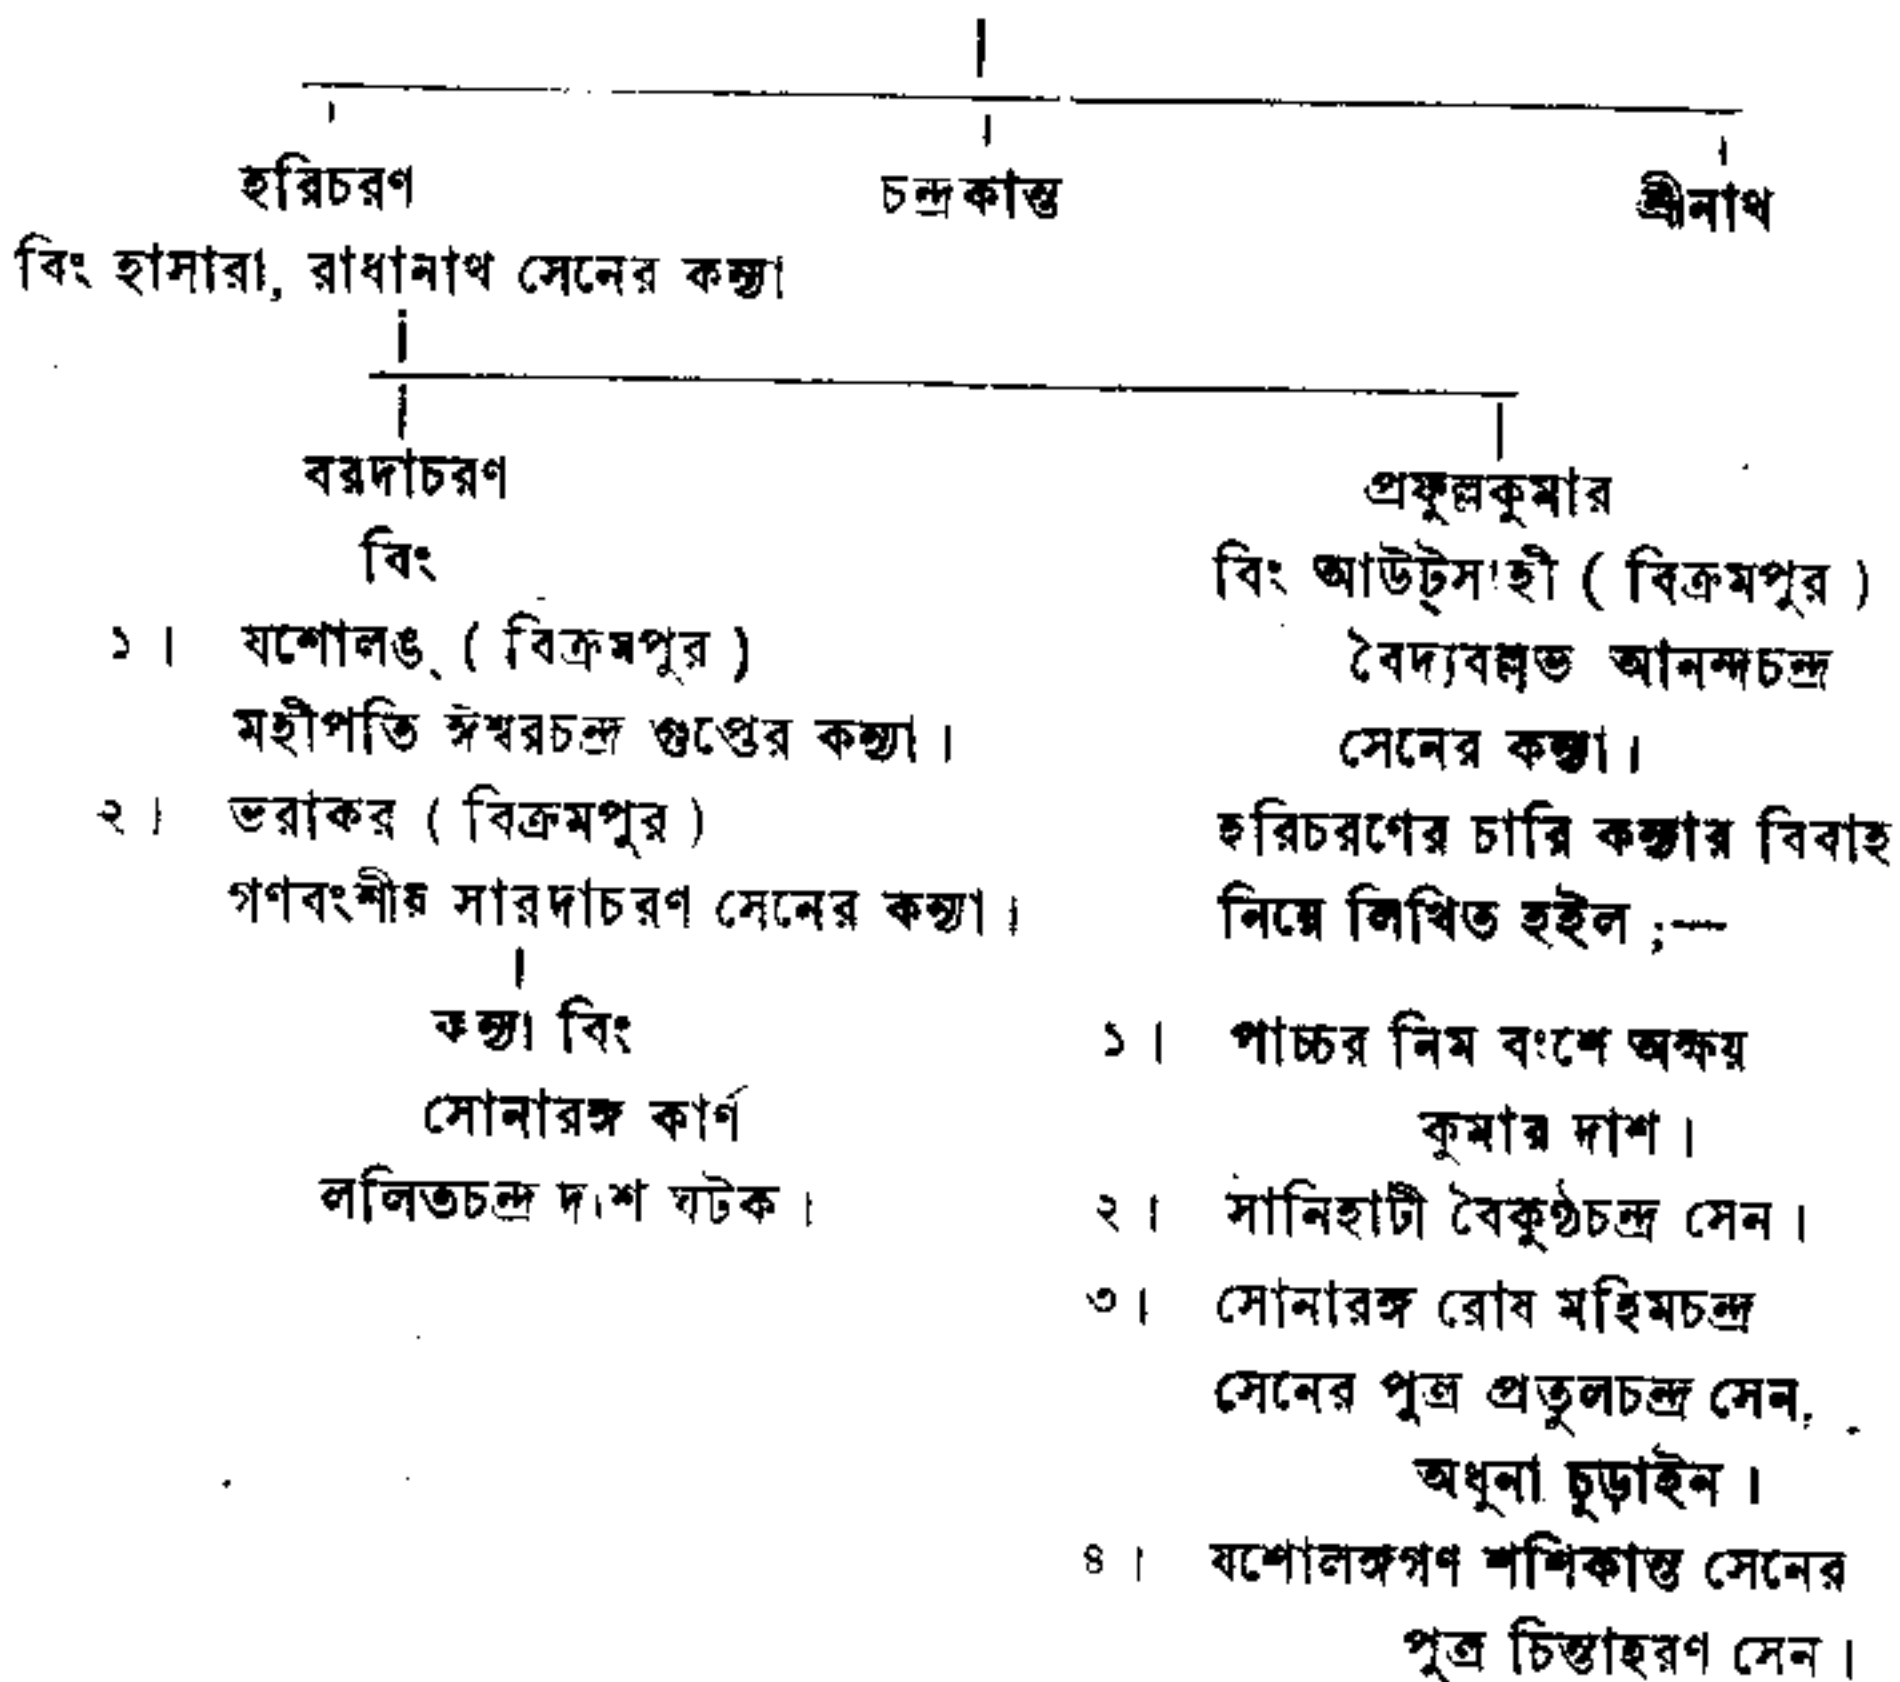 হরিচরণ
চন্দ্রকান্ত
শ্রীনাথ
বিং হাসারা, রাধানাথ সেনের কন্যা
বরদাচরণ
বিং
১। যশোলঙ্ ( বিক্রমপুর )
মহীপতি ঈশ্বরচন্দ্র গুপ্তের কন্যা।
২। ভরাকর ( বিক্রমপুর )
গণবংশীয় সারদাচরণ সেনের কন্যা।
কন্যা বিং
সোনারঙ্গ কার্ণ
ললিতচন্দ্র দাশ ঘটক।
প্রফুল্লকুমার
বিং আউট্সাহী ( বিক্রমপুর )
বৈদ্যবল্লভ আনন্দচন্দ্র
সেনের কন্যা।
হরিচরণের চারি কন্যার বিবাহ
নিম্নে লিখিত হইল ;—
১। পাচ্চর নিম বংশে অক্ষয়
কুমার দাশ।
২। সানিহাটী বৈকুণ্ঠচন্দ্র সেন।
৩। সোনারঙ্গ রোষ মহিমচন্দ্র
সেনের পুত্র প্রতুলচন্দ্র সেন,
অধুনা চুড়াইন।
৪। যশোলঙ্গগণ শশিকান্ত সেনের
পুত্র চিন্তাহরণ সেন।